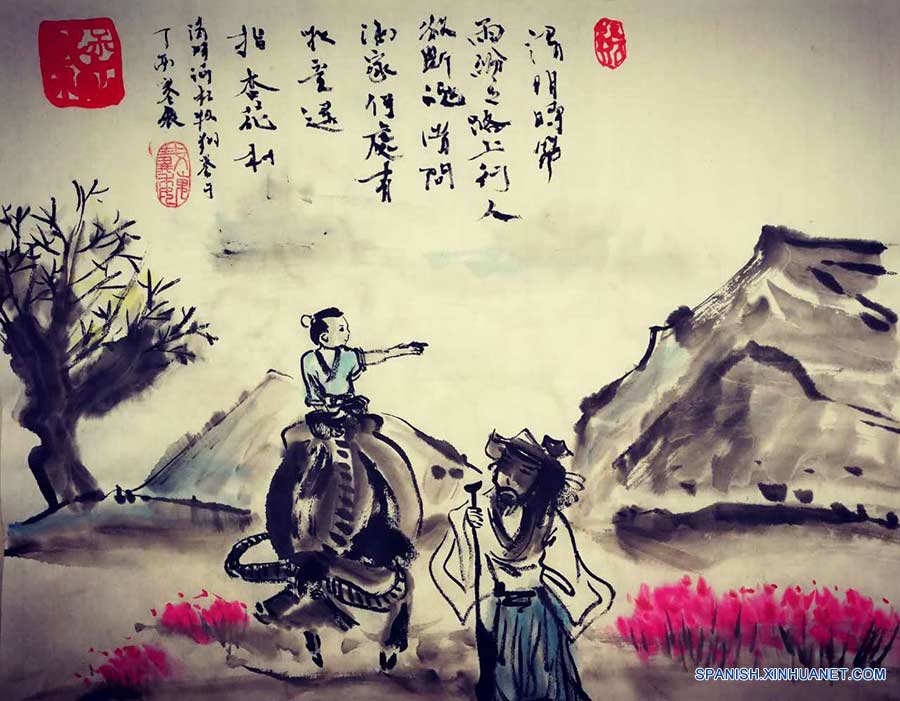 清明時節
雨紛々路上行人
欲斷魂借問
酒家何處有
牧童遥
指杏花村
清明詞杜牧
丁酉寒食
SPANISH.XINHUANET.COM